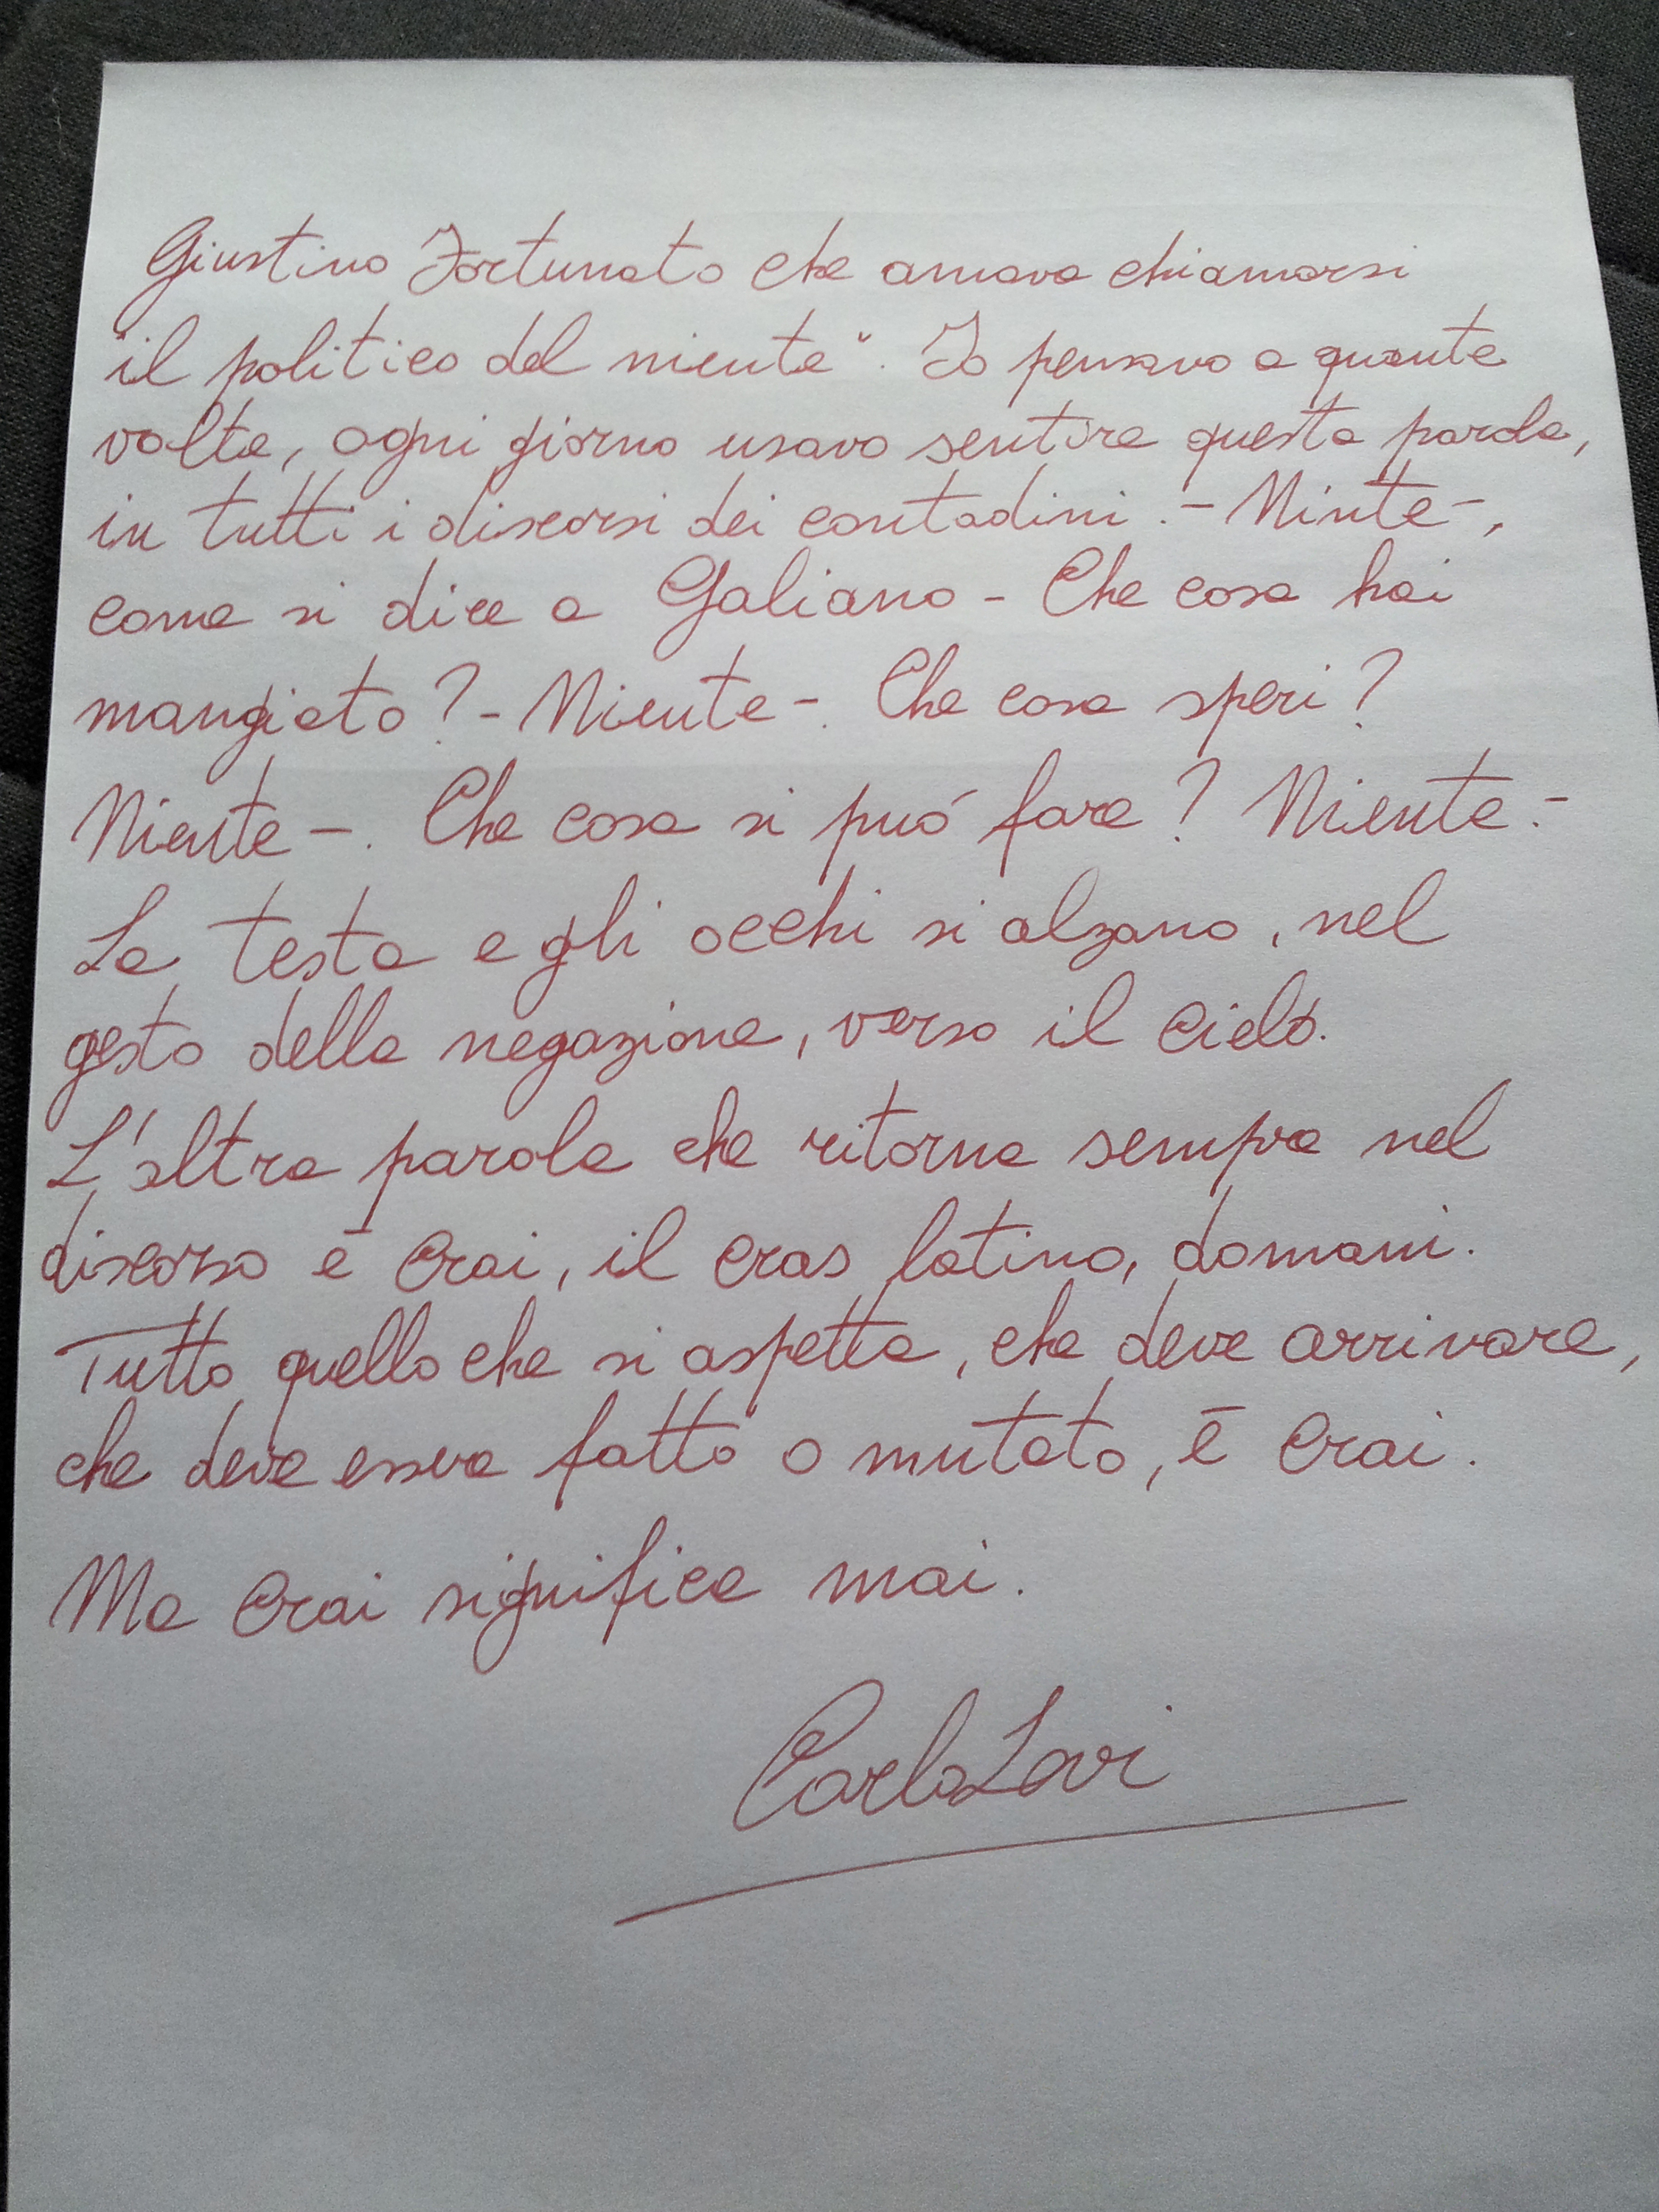 Giustino Fortunato che amava chiamarsi
"il politico del niente". Io pensavo a quante
volte, ogni giorno usavo sentire questa parola,
in tutti i discorsi dei contadini. - Ninte -,
come si dice a Galiano - Che cosa hai
mangiato? - Niente -. Che cosa speri?
Niente -. Che cosa si può fare? Niente. -
La testa e gli occhi si alzano, nel
gesto della negazione, verso il cielo.
L'altra parola che ritorna sempre nel
discorso è crai, il cras latino, domani.
Tutto quello che si aspetta, che deve arrivare,
che deve essere fatto o mutato, è crai.
Ma crai significa mai.
Carlo Levi